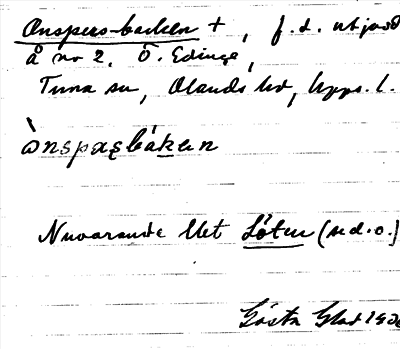 Onspers-backen +, f.d. utjord
å nr 2, Ö. Edinge,
Tuna sn, Olands hd, Upps. l.
ònspæṣbáken
Nuvarande lht Löten (se d.o.)
Gösta Glad